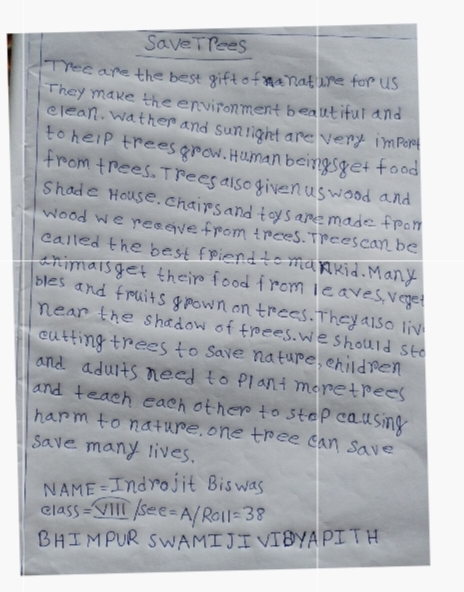 Save Trees
Tree are the best gift of na nature for us
They make the environment beautiful and
clean. wather and sunlight are very import
to help trees grow. Human beings get food
from trees. Trees also given us wood and
shade House. chairs and toys are made from
wood we receive from trees. Trees can be
called the best friend to mankid. Many
animals get their food from leaves, veget
bles and fruits grown on trees. They also liv
near the shadow of trees. we should sto
cutting trees to save nature, children
and adults need to plant more trees
and teach each other to stop causing
harm to nature. one tree can save
save many lives.
NAME = Indrojit Biswas
class = VIII / see = A / Roll = 38
BHIMPUR SWAMIJI VIDYAPITH